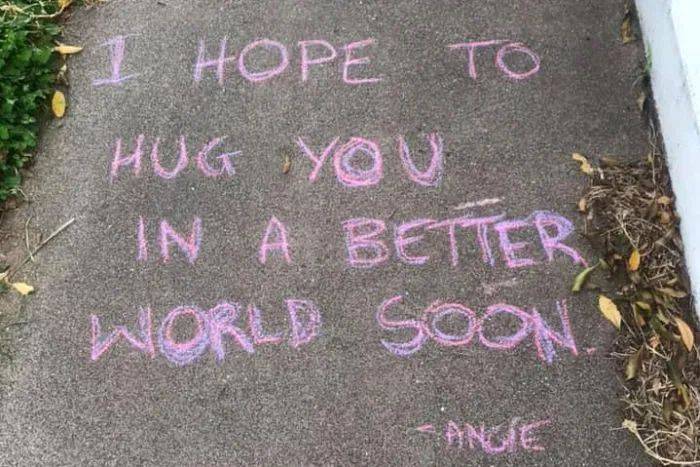 I HOPE TO
HUG YOU
IN A BETTER
WORLD SOON.
- ANGIE